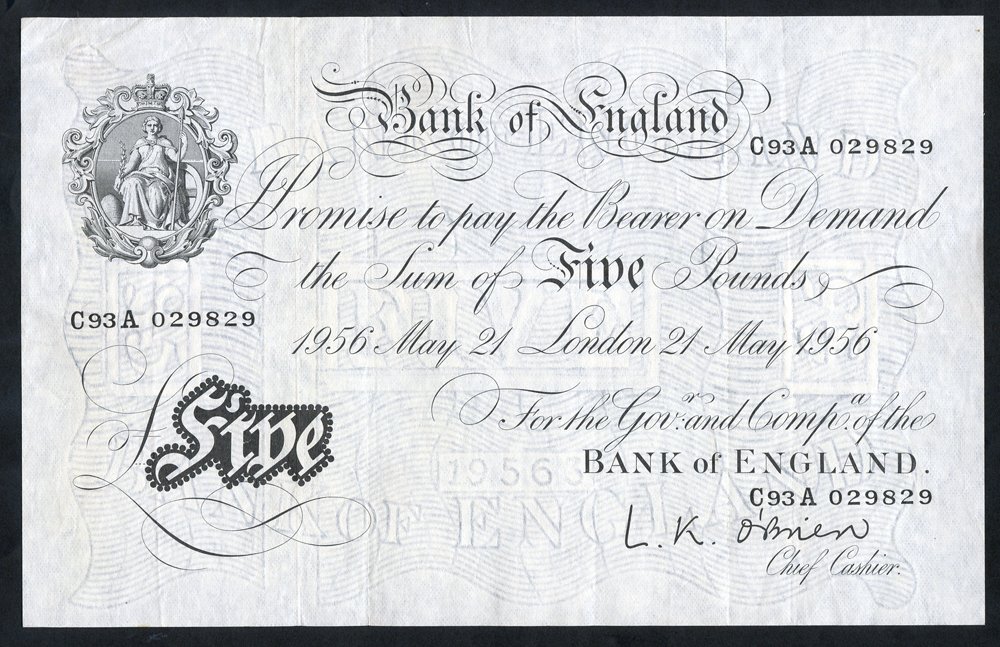 Bank of England
C93A 029829
I Promise to pay the Bearer on Demand
the Sum of Five Pounds
C93A 029829
1956 May 21 London 21 May 1956
£ Five
For the Govr. and Compa. of the
BANK of ENGLAND.
1956
C93A 029829
BANK OF ENGLAND
L. K. O'Brien
Chief Cashier.